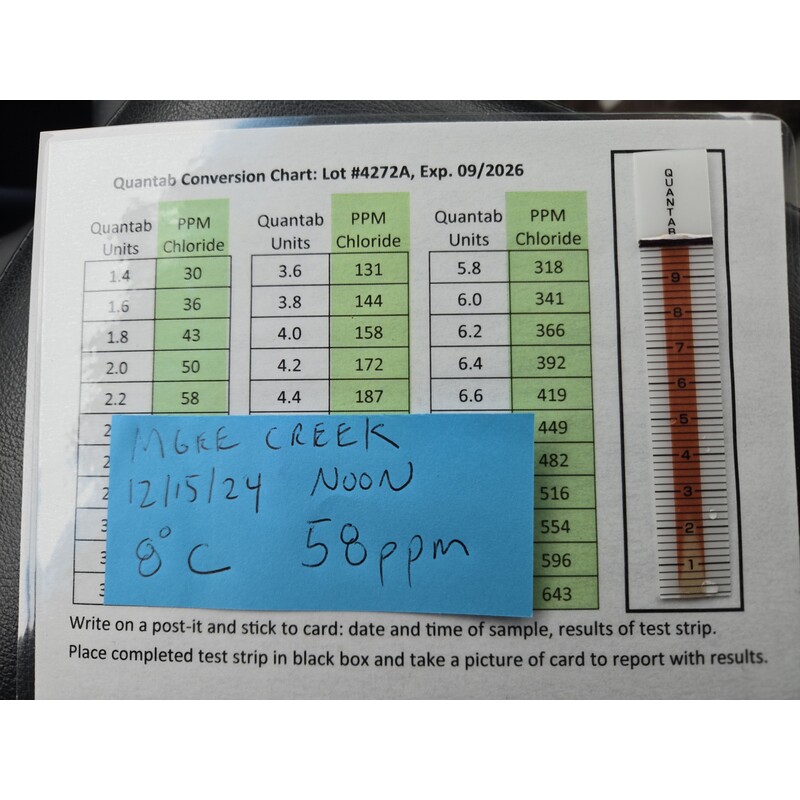 Quantab Conversion Chart: Lot #4272A, Exp. 09/2026
Quantab Units PPM Chloride Quantab Units PPM Chloride Quantab Units PPM Chloride
1.4 30 3.6 131 5.8 318
1.6 36 3.8 144 6.0 341
1.8 43 4.0 158 6.2 366
2.0 50 4.2 172 6.4 392
2.2 58 4.4 187 6.6 419
449
482
516
554
596
643
MGEE CREEK
12/15/24 NOON
8°C 58ppm
Write on a post-it and stick to card: date and time of sample, results of test strip.
Place completed test strip in black box and take a picture of card to report with results.
QUANTAB
9
8
7
6
5
4
3
2
1